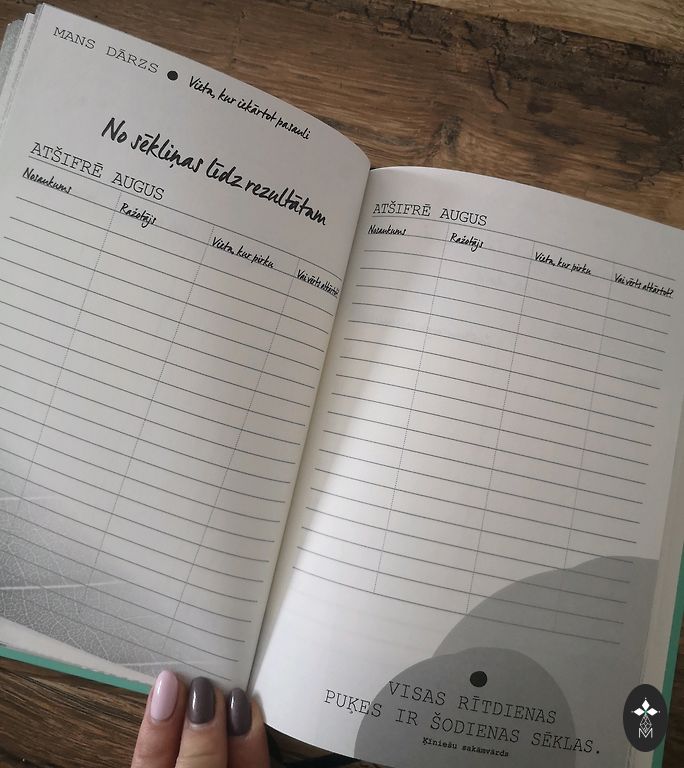 MANS DĀRZS ● Vieta, kur iekārtot pasauli
No sēkliņas līdz rezultātam
ATŠIFRĒ AUGUS
Nosaukums Ražotājs Vieta, kur pirku Vai vērts atkārtot?
ATŠIFRĒ AUGUS
Nosaukums Ražotājs Vieta, kur pirku Vai vērts atkārtot?
VISAS RĪTDIENAS
PUĶES IR ŠODIENAS SĒKLAS.
Ķīniešu sakāmvārds